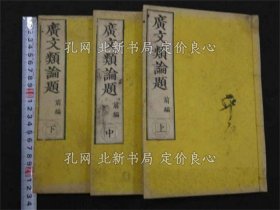 廣文類論題 前編 下
廣文類論題 前編 中
廣文類論題 前編 上
孔网 北新书局 定价良心
孔网 北新书局 定价良心